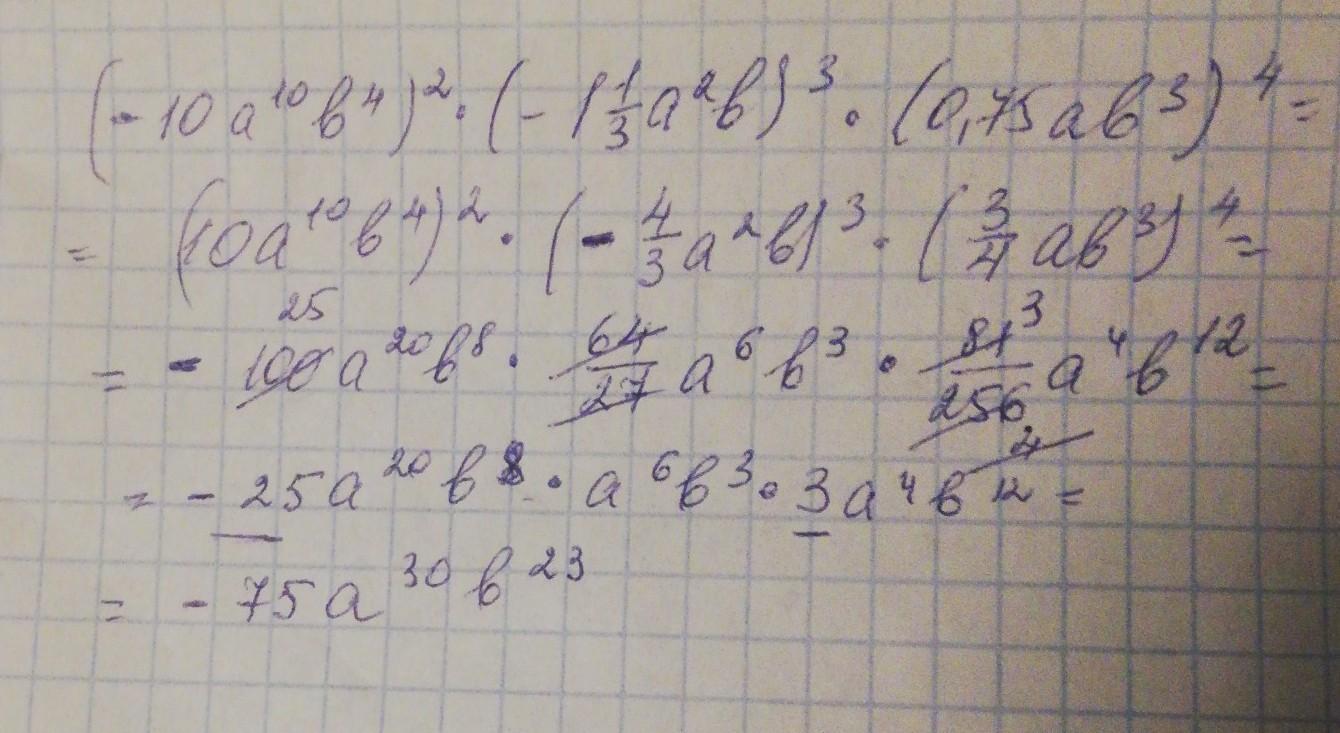 (-10a¹⁰b⁴)²·(-1⅓a²b)³·(0,75ab³)⁴=
=(10a¹⁰b⁴)²·(-4/3a²b)³·(3/4ab³)⁴=
25
=-100a²⁰b⁸·64/27a⁶b³·81³/256a⁴b¹²=
4
=-25a²⁰b⁸·a⁶b³·3a⁴b¹²=
=-75a³⁰b²³